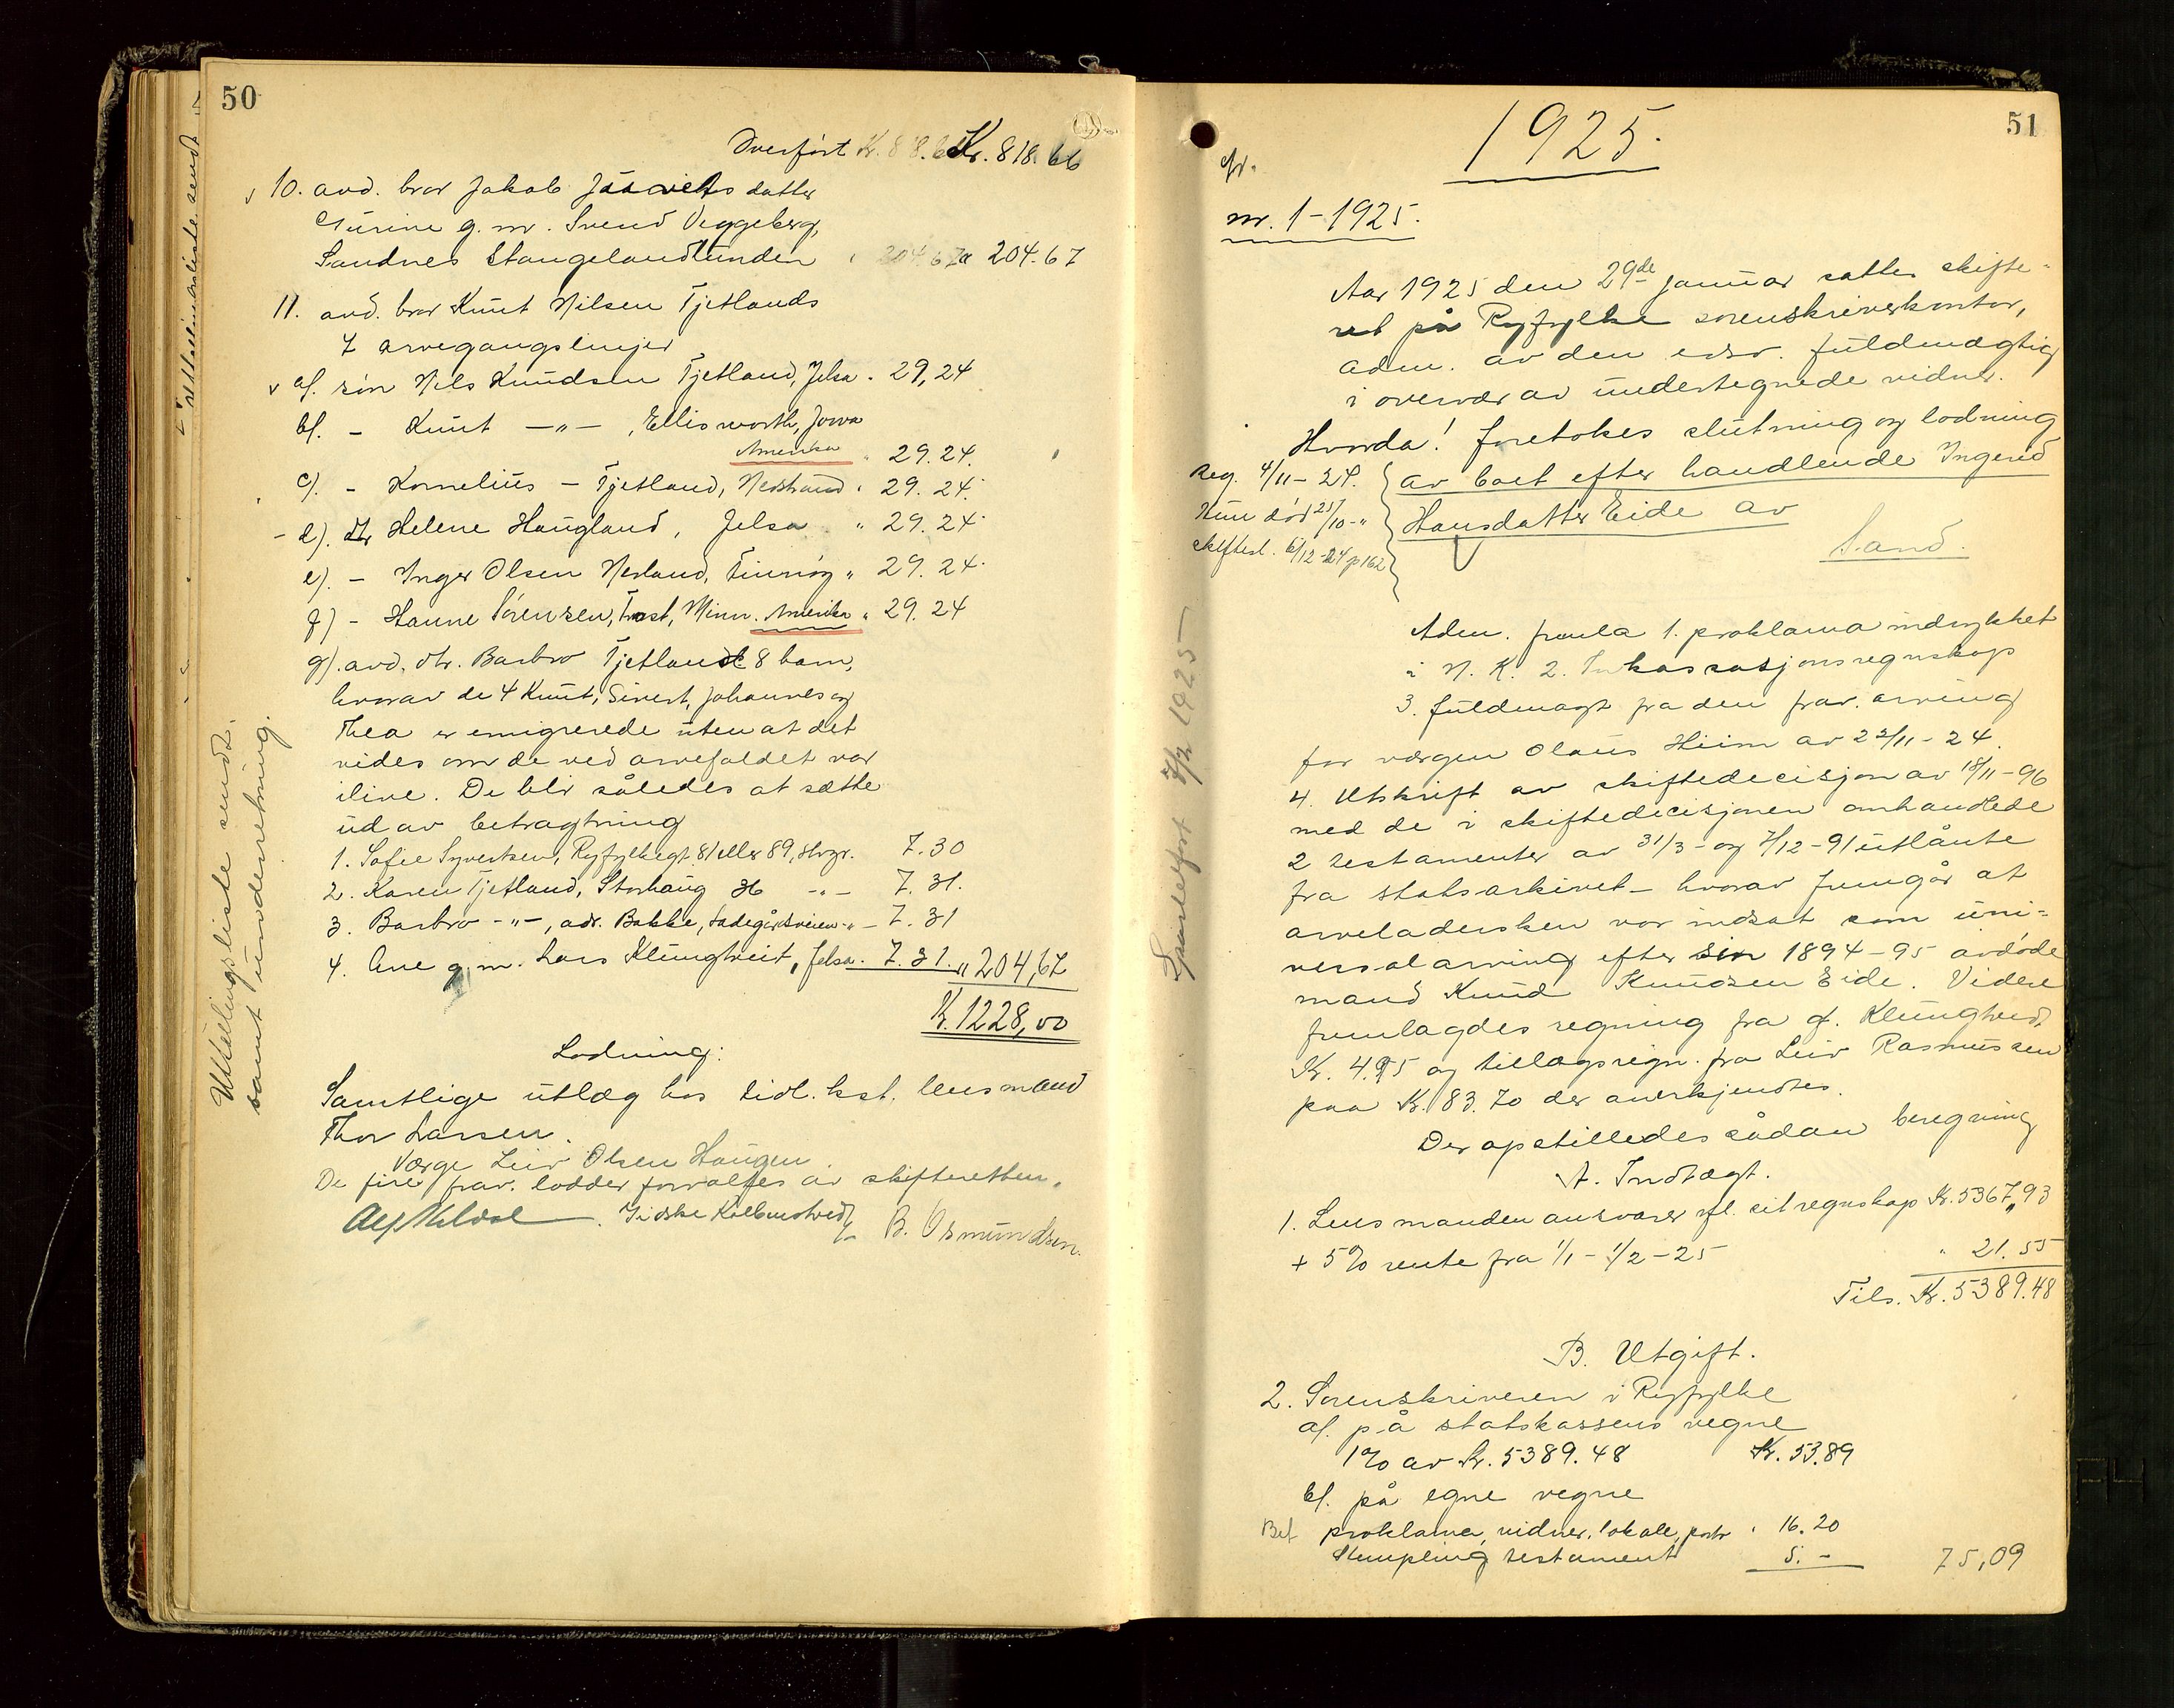 50
Overført Kr. 818.66
10. avd. bror Jakob datter
Gurine g. m. Svend Veggeberg,
Sandnes Stangelandlunden 204.67 204.67
11. avd. bror Knut Nilsen Tjetlands
7 arvegangslinjer
a/. søn Nils Knudsen Tjetland, Jelsa. 29,24
b/. - Knut -"- , Ellisworth, Jowa
Amerika " 29.24.
c/. - Kornelius - Tjetland, Nedstrand " 29.24.
d). dtr Helene Haugland, Jelsa " 29.24
e). - Inger Olsen Nesland, Finnøy " 29.24.
f) - Hanne Sørensen, Frost, Minn. Amerika " 29.24
g). avd. dtr. Barbro Tjetlands 8 barn,
hvorav de 4 Knut, Sivert, Johannes og
Thea er emigrerede uten at det
vides om de ved arvefaldet var
ilive. De blir således at sætte
ud av betragtning
1. Sofie Syvertsen, Ryfylkegt. 81 eller 89, Stvgr. 7.30
2. Karen Tjetland, Storhaug 36 -"- 7.31.
3. Barbro -"-, adr. Bakke, Ladegårdsveien -"- 7.31
4. Ane g. m. Lars Klungtveit, Jelsa. 7.31. " 204,67
Kr. 1228,00
Lodning:
Samtlige utlæg hos tidl. kst. lensmand
Thor Larsen.
Værge Leiv Olsen Haugen.
De fire frav. lodder forvaltes av skifteretten.
B. Osmundsen.
Utællingsliste sendt.
samt underretning.
51
1925.
nr. 1-1925.
Aar 1925 den 29de januar sattes skifte-
ret på Ryfylke sorenskriverkontor,
adm. av den edsv. fuldmægtig
i overvær av undertegnede vidner.
Hvorda! foretokes slutning og lodning
av boet efter handlende Ingerid
Hansdatter Eide av
Sand.
Reg. 4/11-24.
Hun død 25/10-"
skiftesl. 6/12-24 p 162
Adm. fremla 1. proklama indrykket
i N. K. 2. Inkassasjonsregnskap
3. fuldmagt fra den frav. arving
for værgen Olaus Hiim av 22/11-24.
4. Utskrift av skiftedecisjon av 18/11-96
med de i skiftedecisjonen omhandlede
2 testamenter av 31/3- og 7/12-91 utlånte
fra statsarkivet - hvorav fremgår at
arveladersken var indsat som uni-
versalarving efter sin 1894-95 avdøde
mand Knud Knudsen Eide. Videre
fremlagdes regning fra g. Klungtveit
Kr. 4.95 og tillægsregn. fra Leiv Rasmussen
paa Kr. 83.70 der anerkjendtes.
Der opstilledes sådan beregning
A. Indtægt.
1. Lensmanden ansvarer ifl. sit regnskap Kr. 5367,93
+ 5% rente fra 1/1-1/2-25 " 21.55
Tils. Kr. 5389.48
B. Utgift.
2. Sorenskriveren i Ryfylke
a/. på statskassens vegne
1% av Kr. 5389.48 Kr. 53.89
b/. på egne vegne
Bet proklama, vidner, lokale, porto " 16.20
Stempling testament 5.- 75,09